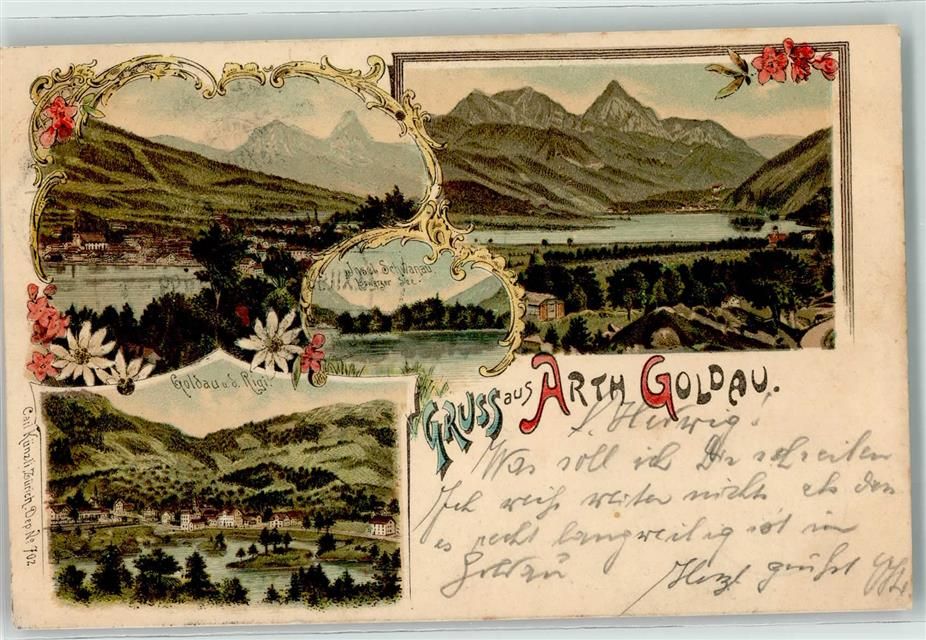 Insel Schwanau
Lowerzer See.
Goldau u. d. Rigi.
GRUSS aus ARTH GOLDAU.
Carl Künzli Zürich, Dep. No 702
l. Hedwig!
Was soll ich Dir schreiben
Ich weiß weiter nichts als dass
es recht langweilig ist in
Goldau
Herzl grüßt